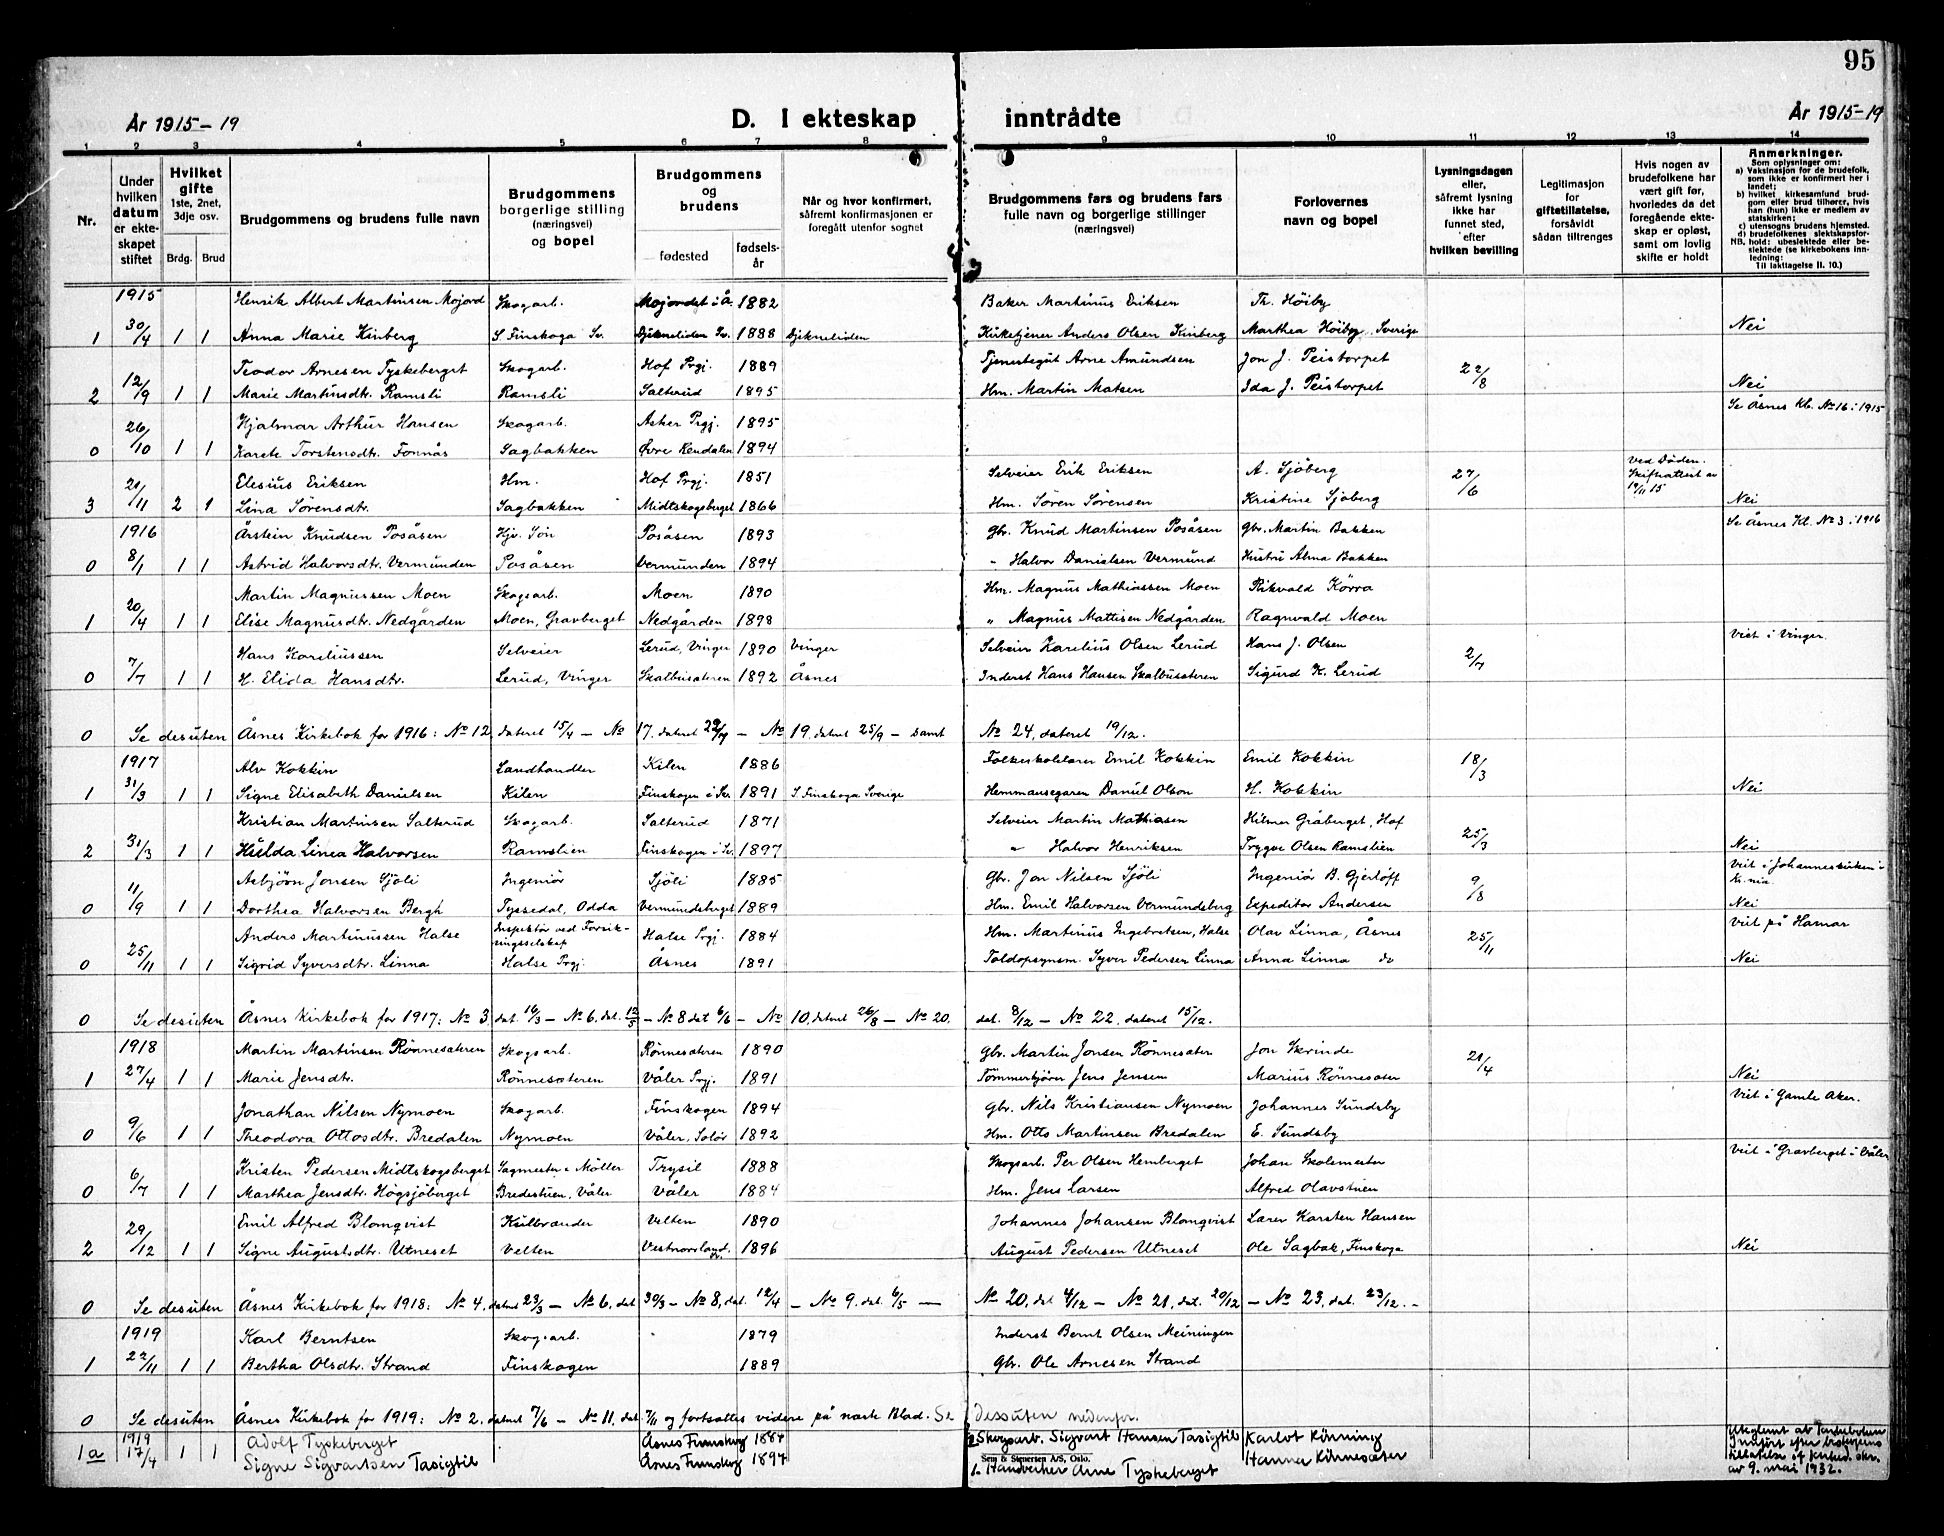 95
År 1915-19 D. I ekteskap inntrådte År 1915-19
1 2 3 4 5 6 7 8 9 10 11 12 13 14
Nr.
Under hvilken datum er ekteskapet stiftet
Hvilket gifte 1ste, 2net, 3dje osv.
Brdg. Brud
Brudgommens og brudens fulle navn
Brudgommens borgerlige stilling (næringsvei) og bopel
Brudgommens og brudens
fødested
fødselsår
Når og hvor konfirmert, såfremt konfirmasjonen er foregått utenfor sognet
Brudgommens fars og brudens fars fulle navn og borgerlige stillinger (næringsvei)
Forlovernes navn og bopel
Lysningsdagen eller, såfremt lysning ikke har funnet sted, efter hvilken bevilling
Legitimasjon for giftetillatelse, forsåvidt sådan tiltrenges
Hvis nogen av brudefolkene har vært gift før, hvorledes da det foregående ekteskap er opløst, samt om lovlig skifte er holdt
Anmerkninger.
Som oplysninger om:
a) Vaksinasjon for de brudefolk, som ikke er konfirmert her i landet;
b) hvilket kirkesamfund brudgom eller brud tilhører, hvis han (hun) ikke er medlem av statskirken;
c) utensogns brudens hjemsted.
d) brudefolkenes slektskapsforhold: ubeslektede eller beslektede (se kirkebokens innledning: NB. Til iakttagelse II. 10.)
1915 Henrik Albert Martinsen Mojord Skogarb. Mojordet i Å. 1882 Baker Martinus Eriksen Th. Höiby
1 30/4 1 1 Anna Marie Kinberg S. Finskoga Sv. Djekneliden Sv. 1888 Djekneliden Kirketjener Anders Olsen Kinberg Marthea Höiby, Sverige Nei
Teodor Arnesen Tyskeberget Skogarb. Hof Prgj. 1889 Tjenestegut Arne Amundsen Jon J. Peistorpet
2 12/9 1 1 Marie Martinsdtr. Ramsli Ramsli Salterud 1895 Hm. Martin Matsen Ida J. Peistorpet 22/8 Nei
Hjalmar Arthur Hansen Skogarb. Asker Prgj. 1895 Se Åsnes Kb. No 16 i 1915
0 26/10 1 1 Karete Torstensdtr. Fonnås Sagbakken Øvre Rendalen 1894
Elesius Eriksen Hm. Hof Prgj. 1851 Selveier Erik Eriksen A. Sjöberg ved Døden. Skifteattest av 19/11 15
3 21/11 2 1 Lina Sörensdtr. Sagbakken Midtskogsberget 1866 Hm. Sören Sörensen Kristine Sjöberg 27/6 Nei
1916 Årstein Knudsen Posåsen Hjv. Sön Posåsen 1893 Gbr. Knud Martinsen Posåsen Gbr. Martin Bakken Se Åsnes Kb. No 3 i 1916
0 8/1 1 1 Astrid Halvorsdtr. Vermunden Posåsen Vermunden 1894 " Halvor Danielsen Vermund Hustru Alma Bakken
Martin Magnussen Moen Skogsarb. Moen 1890 Hm. Magnus Mathiassen Moen Rikvald Körra
1 20/4 1 1 Elise Magnusdtr. Nedgården Moen, Gravberget Nedgården 1898 " Magnus Mattisen Nedgården Ragnvald Moen
Hans Kareliussen Selveier Lerud, Vinger 1890 Vinger Selveier Karelius Olsen Lerud Hans J. Olsen Viet i Vinger.
0 7/7 1 1 H. Elida Hansdtr. Lerud, Vinger Skalbusæteren 1892 Åsnes Inderst Hans Hansen Skalbusæteren Sigurd K. Lerud 2/7
0 Se desuten Åsnes Kirkebok for 1916: No 12, dateret 15/4 - No 17, dateret 29/7 - No 19, dateret 25/9 - samt No 24, dateret 19/12.
1917 Alv Kokkin Landhandler Kilen 1886 Folkeskolelærer Emil Kokkin Emil Kokkin 18/3
1 31/3 1 1 Signe Elisabeth Danielsen Kilen Finskogen i Sv. 1891 S. Finskoga Sverige Hemmansegaren Daniel Olson H. Kokkin Nei
Kristian Martinsen Salterud Skogarb. Salterud 1871 Selveier Martin Mathiasen Hilmer Gråberget, Hof
2 31/3 1 1 Hulda Linea Halvorsen Ramslien Finskogen i Sv. 1897 " Halvor Henriksen Trygve Olsen Ramslien 25/3 Nei
Asbjörn Jonsen Sjöli Ingeniör Sjöli 1885 Gbr. Jon Nilsen Sjöli Ingeniör B. Gjerlöff 9/8 Viet i Johanneskirken i Kr.nia.
0 11/9 1 1 Dorthea Halvorsen Bergh Tyssedal, Odda Vermundsberget 1889 Hm. Emil Halvorsen Vermundsberg Expeditor Andersen Nei
Anders Martinussen Halse Inspektör ved Forsikringsselskap Halse Prgj. 1884 Hm. Martinus Ingebretsen, Halse Olav Linna, Åsnes 25/11 Viet på Hamar
0 25/11 1 1 Sigrid Syversdtr. Linna Halse Prgj. Åsnes 1891 Toldopsynsm. Syver Pedersen Linna Anna Linna do Nei
0 Se desuten Åsnes Kirkebok for 1917: No 3, dat. 16/3 - No 6, dat. 12/5 - No 8 dat 6/6 - No 10, dateret 26/8 - No 20, dat. 8/12 - No 22, dateret 15/12.
1918 Martin Martinsen Rönnesæteren Skogsarb. Rönnesæteren 1890 Gbr. Martin Jonsen Rönnesæter Jon Skrinde
1 27/4 1 1 Marie Jensdtr. Rönnesæteren Våler Prgj. 1891 Tömmerkjörer Jens Jensen Marius Rönnesæter 21/4 Nei
Jonathan Nilsen Nymoen Skogarb. Finskogen 1894 Gbr. Nils Kristiansen Nymoen Johannes Sundsby Viet i Gamle Aker.
0 9/6 1 1 Theodora Ottosdtr. Bredalen Nymoen Våler, Solör 1892 Hm. Otto Martinsen Bredalen E. Sundsby
Kristen Pedersen Midtskogsberget Sagmester & Möller Trysil 1888 Skogsarb. Per Olsen Hemberget Johan Skolemester Viet i Gravberget i Våler
0 6/7 1 1 Marthea Jensdtr. Högsjöberget Bredestuen, Våler Våler 1884 Hm. Jens Larsen Alfred Olavstuen
Emil Alfred Blomqvist Kulbrænder Velten 1890 Johannes Johansen Blomqvist Lærer Karsten Hansen
2 29/12 1 1 Signe Augustsdtr. Utneset Velten Vestnorrland. 1896 August Pedersen Utneset Ole Sagbak, Finskoga Nei
0 Se desuten Åsnes Kirkebok for 1918: No 4, dateret 23/3 - No 6, dat 30/3 - No 8, dat. 12/4 - No 9. dat. 6/5 - No 20, dat 4/12 - No 21, dat. 20/12 - No 23, dat. 23/12. -
1919 Karl Berntsen Skogsarb. 1879 Inderst Bernt Olsen Meiningen
1 22/11 1 1 Bertha Olsdtr. Strand Finskogen 1889 Gbr. Ole Arnesen Strand
0 Se desuten Åsnes Kirkebok for 1919: No 2, dateret 7/6 - No 11, dat. 7/11 og fortsættes videre på næste Blad. Se dessuten nedenfor.
1a 1919 17/4 1 1 Adolf Tyskeberget Åsnes Finnskog 1884 2. Skogsarb. Sigvart Hansen Tasigtil Karlot Rönning
Signe Sigvartsen Tasigtil Åsnes Finnskog 1894 1. Handverker Arne Tyskeberget Hanna Rönnesæter
Sem & Stenersen A/S, Oslo.
Uteglemt av Kirkeboken Innført efter biskopens tillatelse av 9. mai 1932.